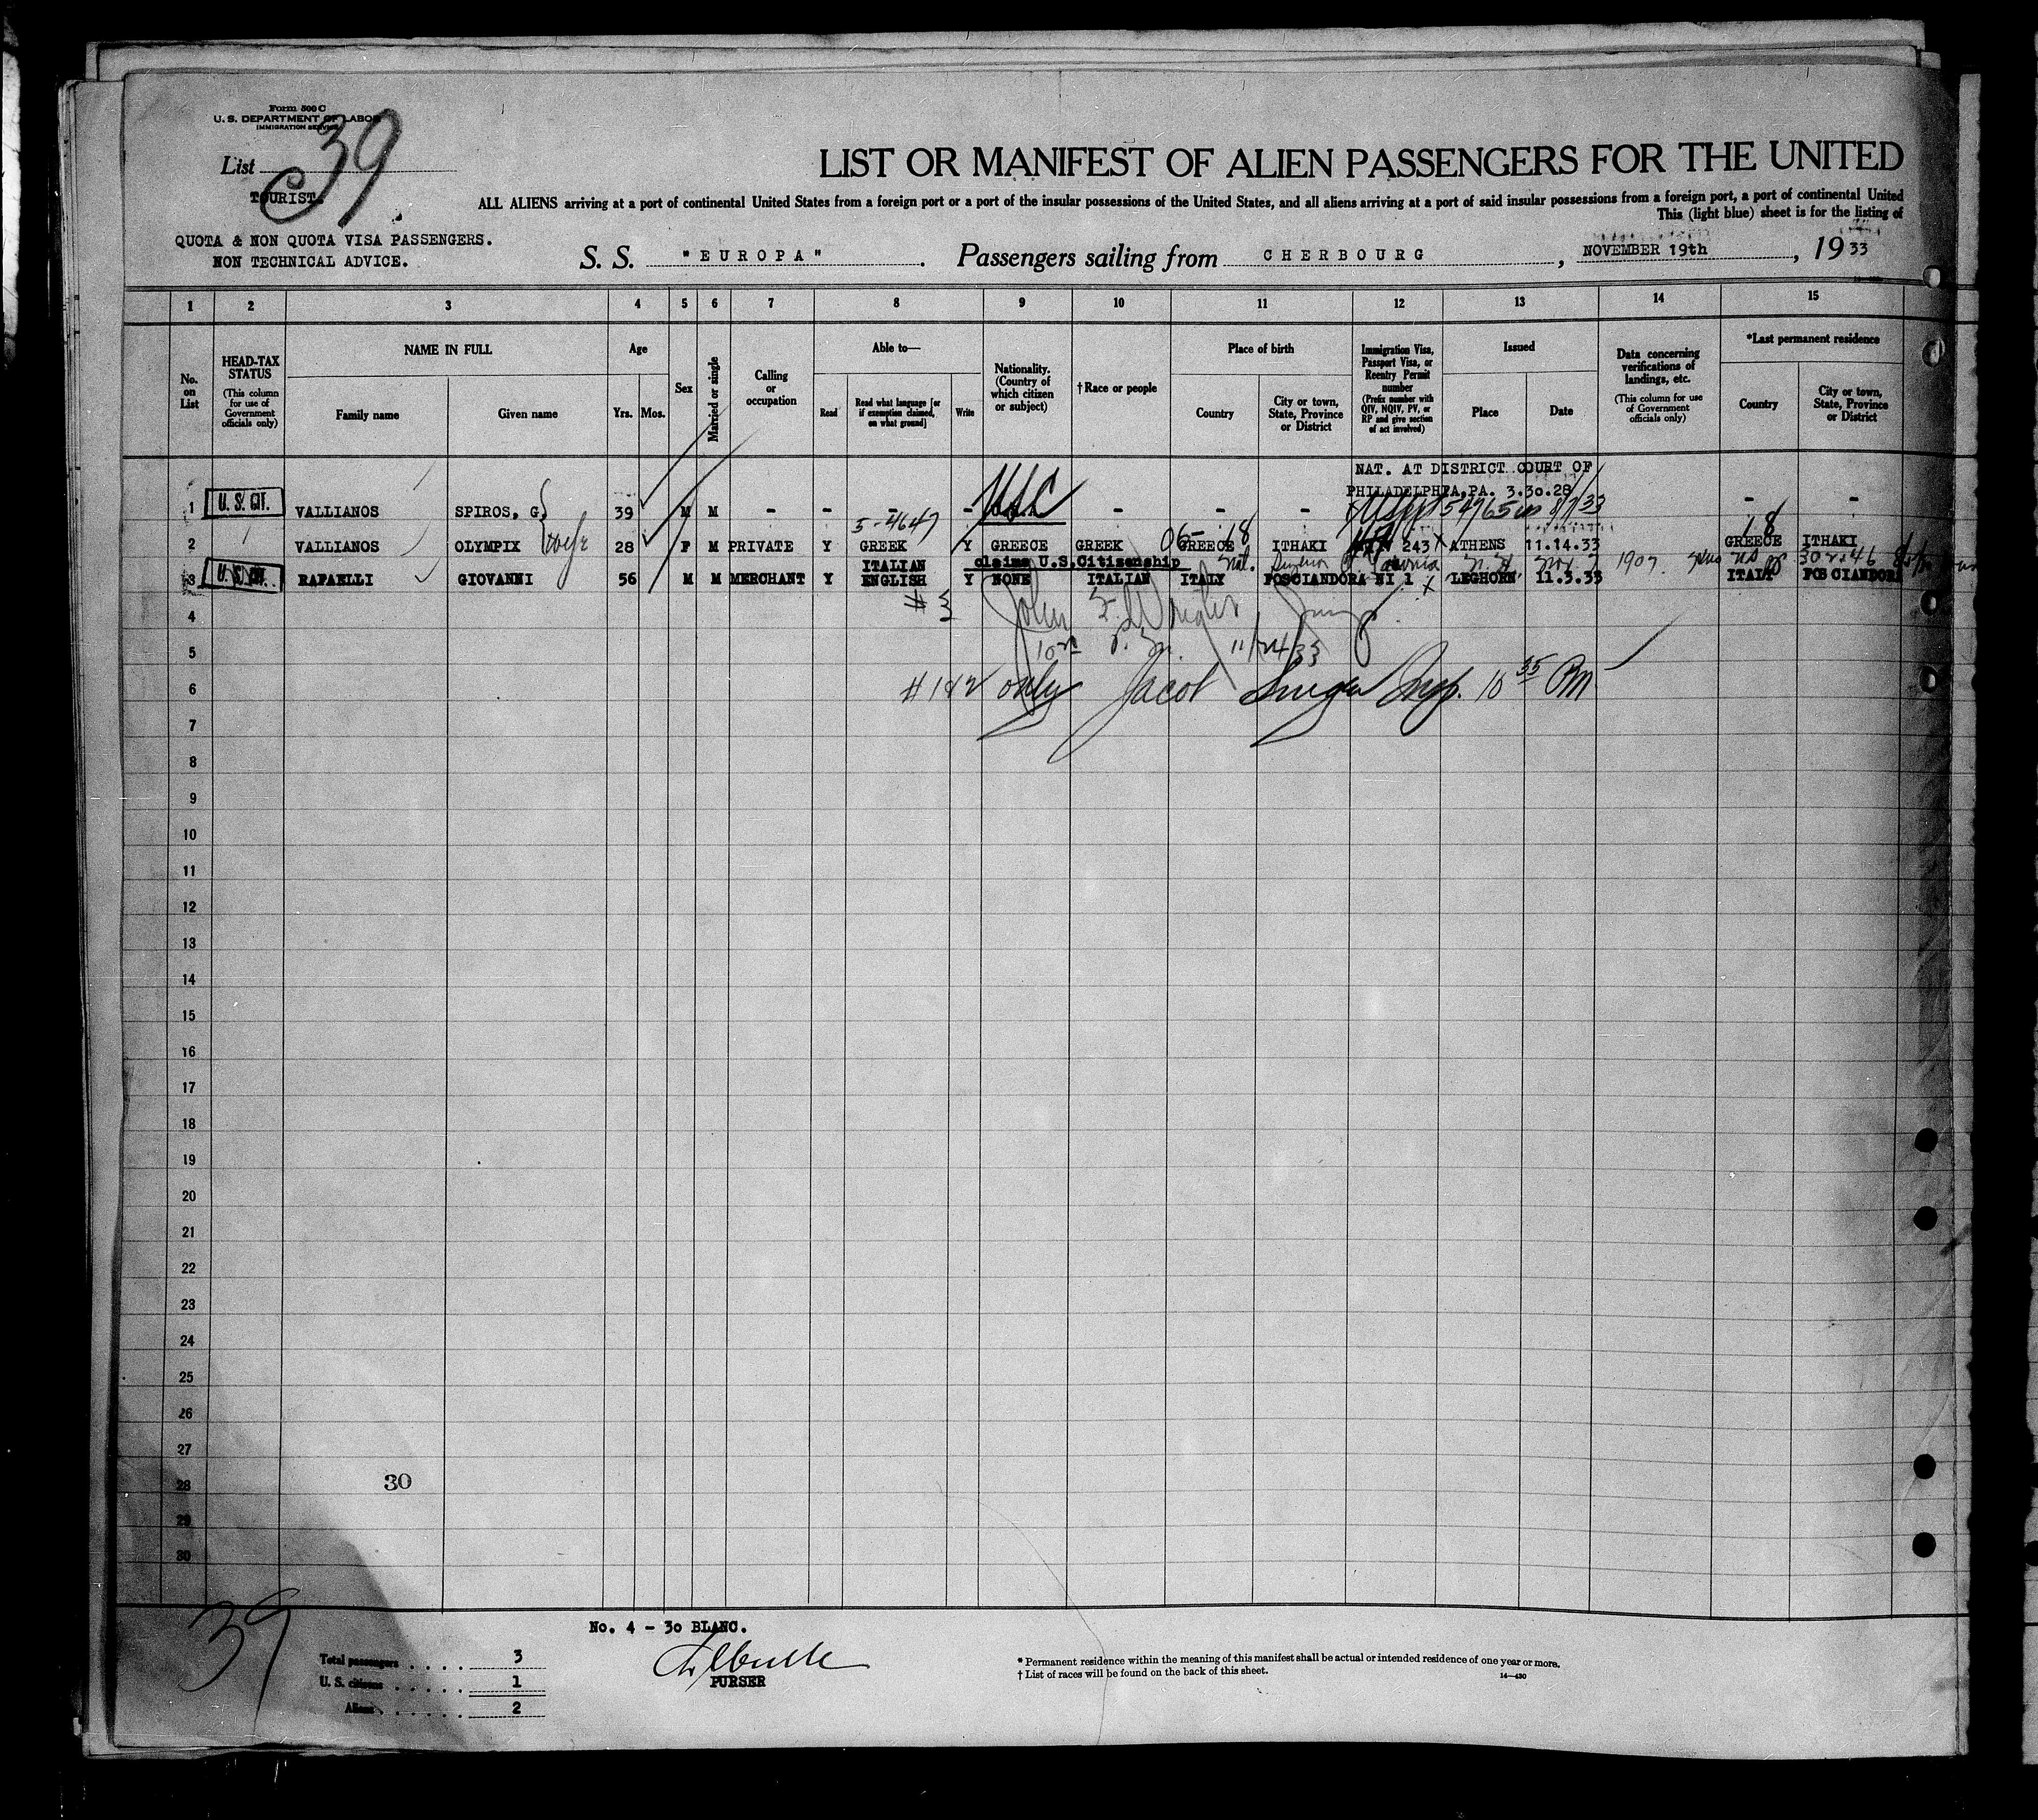 Form 500 C
U. S. DEPARTMENT OF LABOR
IMMIGRATION SERVICE
List
39
TOURIST.
QUOTA & NON QUOTA VISA PASSENGERS.
NON TECHNICAL ADVICE.
LIST OR MANIFEST OF ALIEN PASSENGERS FOR THE UNITED
ALL ALIENS arriving at a port of continental United States from a foreign port or a port of the insular possessions of the United States, and all aliens arriving at a port of said insular possessions from a foreign port, a port of continental United
This (light blue) sheet is for the listing of
S. S. "EUROPA". Passengers sailing from CHERBOURG, NOVEMBER 19th, 1933
1 2 3 4 5 6 7 8 9 10 11 12 13 14 15
No. on List
HEAD-TAX STATUS
(This column for use of Government officials only)
NAME IN FULL
Family name
Given name
Age
Yrs. Mos.
Sex
Married or single
Calling or occupation
Able to—
Read
Read what language [or if exemption claimed, on what ground]
Write
Nationality. (Country of which citizen or subject)
†Race or people
Place of birth
Country
City or town, State, Province or District
Immigration Visa, Passport Visa, or Reentry Permit number
(Prefix number with QIV, NQIV, PV, or RP and give section of act involved)
Issued
Place
Date
Data concerning verifications of landings, etc.
(This column for use of Government officials only)
*Last permanent residence
Country
City or town, State, Province or District
NAT. AT DISTRICT COURT OF
PHILADELPHIA, PA. 3.30.28
1 U. S. CIT. VALLIANOS SPIROS, G. 39 M M - - - - USC - - - 54765 8/7/33 - -
5-4647 06- 18 18
2 VALLIANOS OLYMPIX wife 28 F M PRIVATE Y GREEK Y GREECE GREEK GREECE ITHAKI 243 ATHENS 11.14.33 GREECE ITHAKI
claims U.S.Citizenship 1907 302246
3 U. S. CIT. RAFAELLI GIOVANNI 56 M M MERCHANT Y ITALIAN ENGLISH Y NONE ITALIAN ITALY FOSCIANDORA NI 1 LEGHORN 11.3.33 ITALY FOSCIANDORA
4 # 3 John
5 11/24/33
6 #1&2 only Jacob Insp. 10 35 PM
7
8
9
10
11
12
13
14
15
16
17
18
19
20
21
22
23
24
25
26
27
28
30
29
30
39
No. 4 - 30 BLANC.
Total passengers . . . . 3
U. S. citizens . . . . . 1
Aliens . . . . . . 2
PURSER
* Permanent residence within the meaning of this manifest shall be actual or intended residence of one year or more.
† List of races will be found on the back of this sheet.
14—430